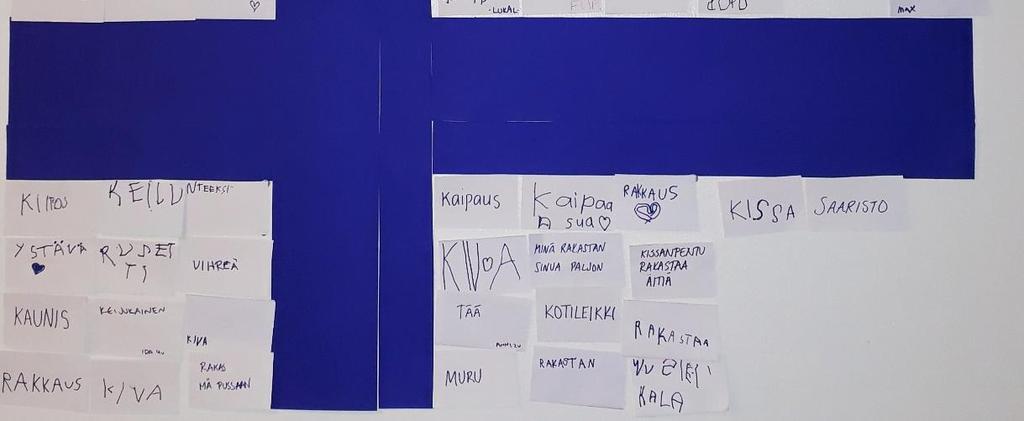 LUKAL
max
KIITOS
KEIJU
NTEEKSI
KAIPAUS
Kaipaa
sua
RAKKAUS
KISSA
SAARISTO
YSTÄVÄ
RUSET
TI
VIHREÄ
KIVA
MINÄ RAKASTAN
SINUA PALJON
KISSANPENTU
RAKASTAA
ÄITIÄ
KAUNIS
KEIJUKAINEN
KIVA
TÄÄ
KOTILEIKKI
RAKASTAA
RAKKAUS
KIVA
RAKAS
MÄ PUSSAAN
MURU
RAKASTAN
KALA